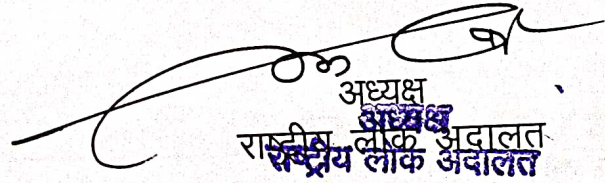 अध्यक्ष
अध्यक्ष
राष्ट्रीय लोक अदालत
राष्ट्रीय लोक अदालत